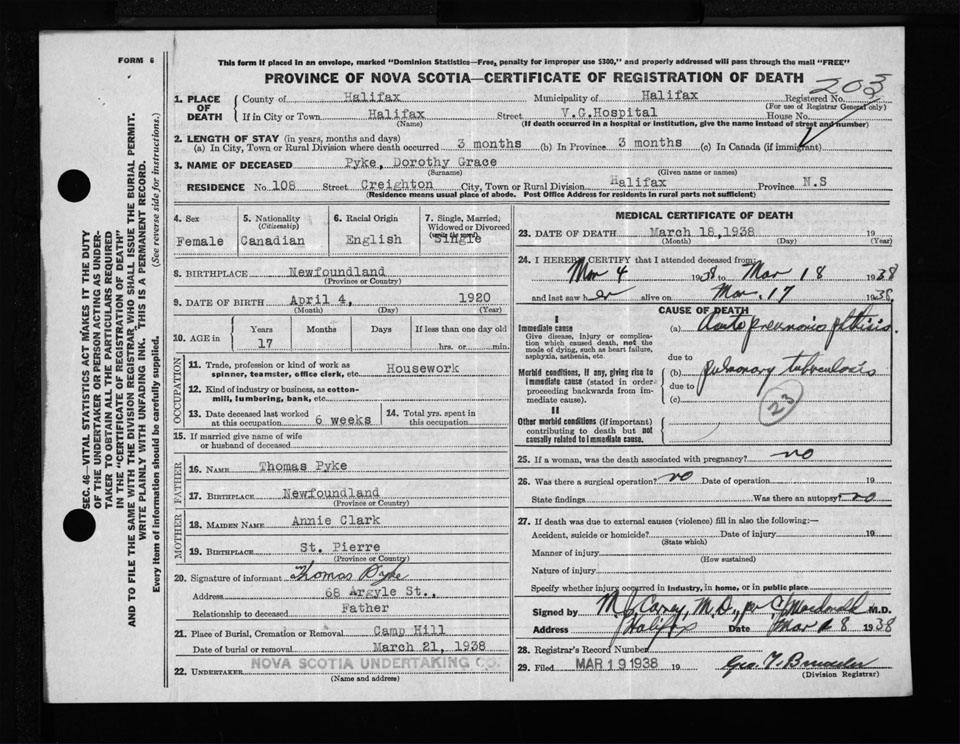 FORM 6
This form if placed in an envelope, marked "Dominion Statistics—Free, penalty for improper use $300," and properly addressed will pass through the mail "FREE"
PROVINCE OF NOVA SCOTIA—CERTIFICATE OF REGISTRATION OF DEATH
203
1. PLACE OF DEATH County of Halifax Municipality of Halifax Registered No.
(For use of Registrar General only)
If in City or Town Halifax Street V.G.Hospital House No.
(Name) (If death occurred in a hospital or institution, give the name instead of street and number)
2. LENGTH OF STAY (in years, months and days)
(a) In City, Town or Rural Division where death occurred 3 months (b) In Province 3 months (c) In Canada (if immigrant)
3. NAME OF DECEASED Pyke, Dorothy Grace
(Surname) (Given name or names)
RESIDENCE No. 108 Street Creighton City, Town or Rural Division Halifax Province N.S
(Residence means usual place of abode. Post Office Address for residents in rural parts not sufficient)
4. Sex 5. Nationality (Citizenship) 6. Racial Origin 7. Single, Married, Widowed or Divorced (write the word)
Female Canadian English Single
8. BIRTHPLACE Newfoundland
(Province or Country)
9. DATE OF BIRTH April 4, 1920
(Month) (Day) (Year)
10. AGE in Years Months Days If less than one day old
17 hrs. or min.
OCCUPATION
11. Trade, profession or kind of work as spinner, teamster, office clerk, etc. Housework
12. Kind of industry or business, as cotton-mill, lumbering, bank, etc.
13. Date deceased last worked at this occupation 6 weeks 14. Total yrs. spent in this occupation
15. If married give name of wife or husband of deceased
FATHER
16. NAME Thomas Pyke
17. BIRTHPLACE Newfoundland
(Province or Country)
MOTHER
18. MAIDEN NAME Annie Clark
19. BIRTHPLACE St. Pierre
(Province or Country)
20. Signature of informant Thomas Pyke
Address 68 Argyle St.,
Relationship to deceased Father
21. Place of Burial, Cremation or Removal Camp Hill
Date of burial or removal March 21, 1938
22. UNDERTAKER NOVA SCOTIA UNDERTAKING CO.
(Name and address)
MEDICAL CERTIFICATE OF DEATH
23. DATE OF DEATH March 18,1938 19
(Month) (Day) (Year)
24. I HEREBY CERTIFY that I attended deceased from:
Mar 4 1938 to Mar 18 1938
and last saw her alive on Mar. 17 1938.
CAUSE OF DEATH
I
Immediate cause
Give disease, injury or complication which caused death, not the mode of dying, such as heart failure, asphyxia, asthenia, etc.
(a) Acute pneumonic phthisis.
due to
Morbid conditions, if any, giving rise to immediate cause (stated in order proceeding backwards from immediate cause).
(b) pulmonary tuberculosis
due to
(c)
23
II
Other morbid conditions (if important) contributing to death but not causally related to immediate cause.
25. If a woman, was the death associated with pregnancy? no
26. Was there a surgical operation? no Date of operation 19
State findings Was there an autopsy? no
27. If death was due to external causes (violence) fill in also the following:—
Accident, suicide or homicide? Date of injury 19
(State which)
Manner of injury
(How sustained)
Nature of injury
Specify whether injury occurred in industry, in home, or in public place
Signed by M.J. Carney, M.D., per C. Macdonald M.D.
Address Halifax Date Mar 18 1938
28. Registrar's Record Number
29. Filed MAR 19 1938 19
(Division Registrar)
SEC. 46—VITAL STATISTICS ACT MAKES IT THE DUTY
OF THE UNDERTAKER OR PERSON ACTING AS UNDER-
TAKER TO OBTAIN ALL THE PARTICULARS REQUIRED
IN THE "CERTIFICATE OF REGISTRATION OF DEATH"
AND TO FILE THE SAME WITH THE DIVISION REGISTRAR WHO SHALL ISSUE THE BURIAL PERMIT.
WRITE PLAINLY WITH UNFADING INK. THIS IS A PERMANENT RECORD.
Every item of information should be carefully supplied. (See reverse side for instructions.)